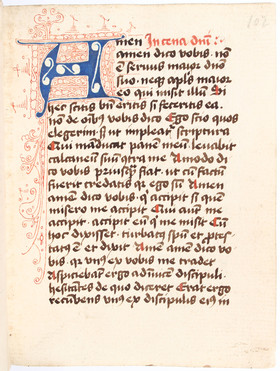 102
Amen In cena dn̄i :
amen dico vobis . nō
ē servus maior dn̄o
suo . neqꝫ apl̄s maior
eo qui misit illum Si
hec scitis bn̄i eritis si feceritis ea .
non de oībꝰ vobis dico Ego scio quos
elegerim . sꝫ ut impleat̃ scriptura
Qui māducat panē meū . levabit
calcaneū suū ꝯtra me Amodo di
co vobis priusꝗ̄ fiat . ut cū factū
fuerit credatis qꝛ ego sū Amen
amen dico vobis . q̄ accipit si quem
misero me accipit Qui aūt me
accipit . accipit eū q̄ me misit Cū
hoc dixisset . turbatꝰ spū et ꝓtes-
tatꝰ ē et dixit Amē amē dico vo
bis . qꝛ unꝰ ex vobis me tradet
Aspiciebāt ergo adīnvicē discipuli .
hesitātes de quo diceret Erat ergo
recūbens unꝰ ex discipulis eiꝰ in